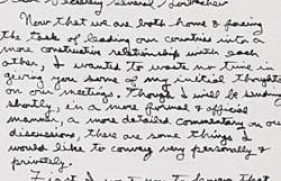 Dear Secretary General Gorbachev
Now that we are both home & facing
the task of leading our countries into a
more constructive relationship with each
other, I wanted to waste no time in
giving you some of my initial thoughts
on our meetings. Though I will be sending
shortly, in a more formal & official
manner, a more detailed commentary on our
discussions, there are some things I
would like to convey very personally &
privately.
First, I want you to know that